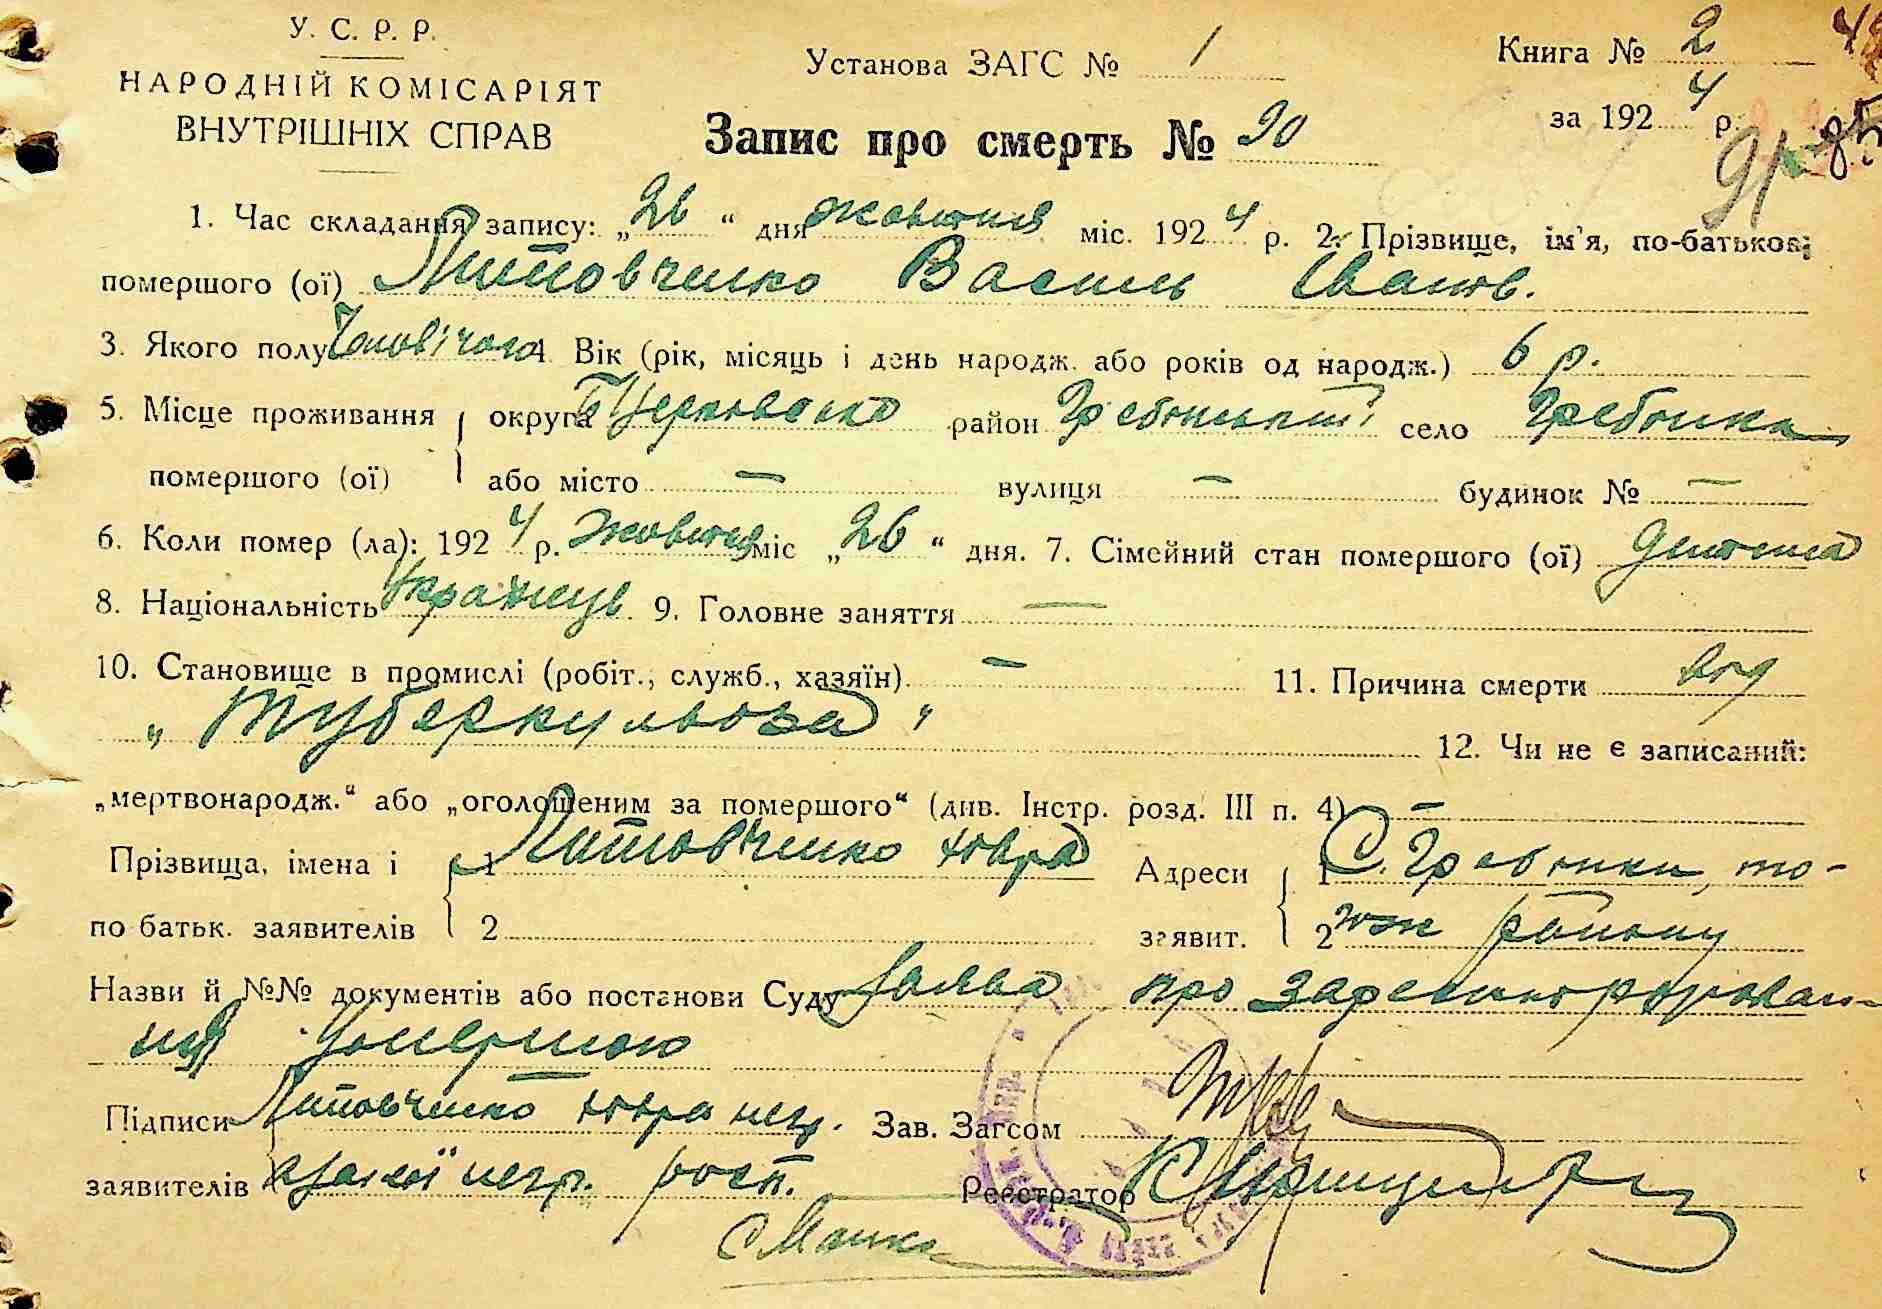 У. С. Р. Р.
НАРОДНІЙ КОМІСАРІЯТ
ВНУТРІШНІХ СПРАВ
Установа ЗАГС № 1
Книга № 2
за 1924 р.
Запис про смерть № 90
91 85
1. Час складання запису: „26“ дня жовтня міс. 1924 р. 2. Прізвище, ім'я, по-батькові
помершого (ої) Литовченко Василь Іванов.
3. Якого полу Чоловічого 4 Вік (рік, місяць і день народж. або років од народж.) 6 р.
5. Місце проживання округа Б Церковсько район Гребінський село Гребінки
помершого (ої) або місто — вулиця — будинок № —
6. Коли помер (ла): 1924 р. Жовтня міс „26“ дня. 7. Сімейний стан помершого (ої) дитина
8. Національність Українць 9. Головне заняття —
10. Становище в промислі (робіт., служб., хазяїн) — 11. Причина смерти від
„Туберкульоза“ 12. Чи не є записаний:
„мертвонародж.“ або „оголошеним за помершого“ (див. Інстр. розд. III п. 4) —
Прізвища, імена і 1 Литовченко Адреси 1 С. Гребінки, то-
по батьк. заявителів 2 заявит. 2 ж району
Назви й №№ документів або постанови Суду Заява про зареєстрован-
ня умершого
Підписи Литовченко негр. Зав. Загсом
заявителів негр. росп. Реєстратор